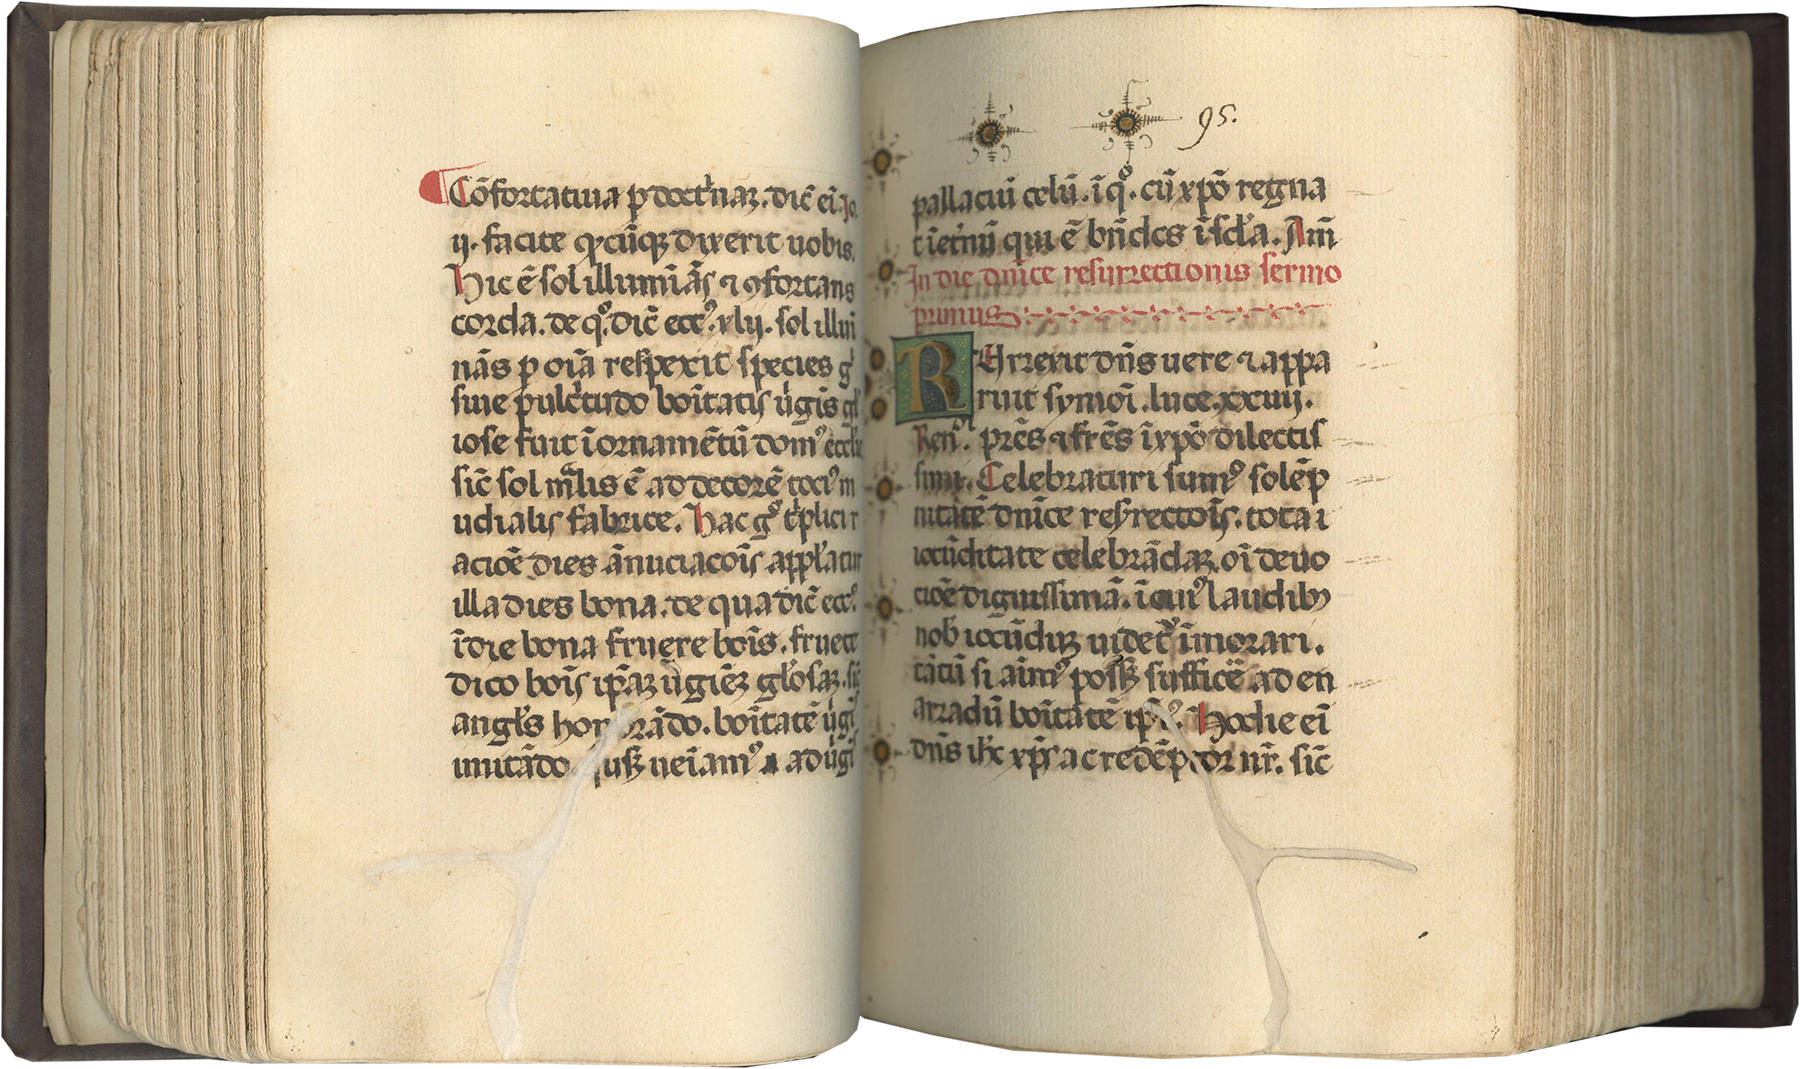 Cōfortatiua ꝑ doctͥnaꝫ. dic̄ ei. Jo.
ij. facite qͦcūqꝫ dixerit uobis.
Hic ē sol illumīās ⁊ ꝯfortans
corda. de qͦ. dic̄ ecc̄ꝰ. xlij. sol illuī
nās ꝑ oīa respexit species
siue pulcͥtudo boītatis ūgīs
iose fuit ī ornamētū domꝰ
sic̄ sol mͣlis ē ad decorē tociꝰ m
udialis fabrice. Hac gͦ tͥplici r
acioē dies ānuciacoīs appl̄atur
illa dies bona. de qua dic̄ ecc̄ꝰ.
ī die bona fruere boīs. fruere
dico boīs ip̄aꝝ ūgīeꝫ gl̄osaꝫ. sic̄
angl̄s honorādo. boītatē ūgī
imitādo. ueīamꝰ ad ūgī
95.
pallaciū celū. ī qͦ. cū xp̄o regna
t ī et̄nū qui ē bn̄dc̄s ī sc̄la. Am̄
In die dn̄ice resurrectionis sermo
primus
REsurrexit dn̄s uere ⁊ appa
ruit symoī. luce. xxiiij.
Ren̄. pr̄es ⁊ fr̄es ī xp̄o dilectis
simi. Celebraturi sumꝰ solēp
nitatē dn̄ice resr̄rectoīs. tota i
iocūditate celebrādaꝫ. oī deuo
cioē dignissimā. ī cuiꝰ laudibꝫ
nob̄ iocūdiꝫ uidet̄ īmorari.
tātū si aīmꝰ possꝫ sufficē ad en
arradū boītatē ip̄iꝰ. Hodie eī
dn̄s ih̄c xp̄s ac redēptor nr̄. sic̄